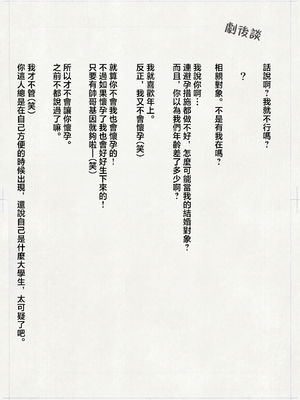 劇後談
話說啊？我就不行嗎？
？
相親對象。不是有我在嗎？
我說你啊…
連避孕措施都做不好，怎麼可能當我的結婚對象？
而且，你以為我們年齡差了多少啊？
我就喜歡年上。
反正，我又不會懷孕（笑）
就算你不會我也會懷孕的！
不過如果懷孕了我也會好好生下來的！
只要有帥哥基因就夠啦——（笑）
所以才不會讓你懷孕。
之前不都說過了嘛。
我才不管（笑）
你這人總是在自己方便的時候出現，還說自己是什麼大學生，太可疑了吧。